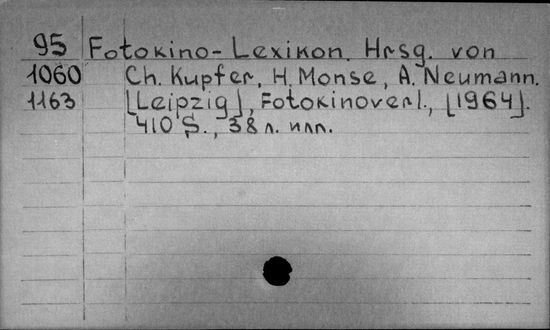 95 Fotokino-Lexikon. Hrsg. von
1060 Ch. Kupfer, H. Monse, A. Neumann.
1163 [Leipzig], Fotokinoverl., [1964].
410 S., 38 л. илл.